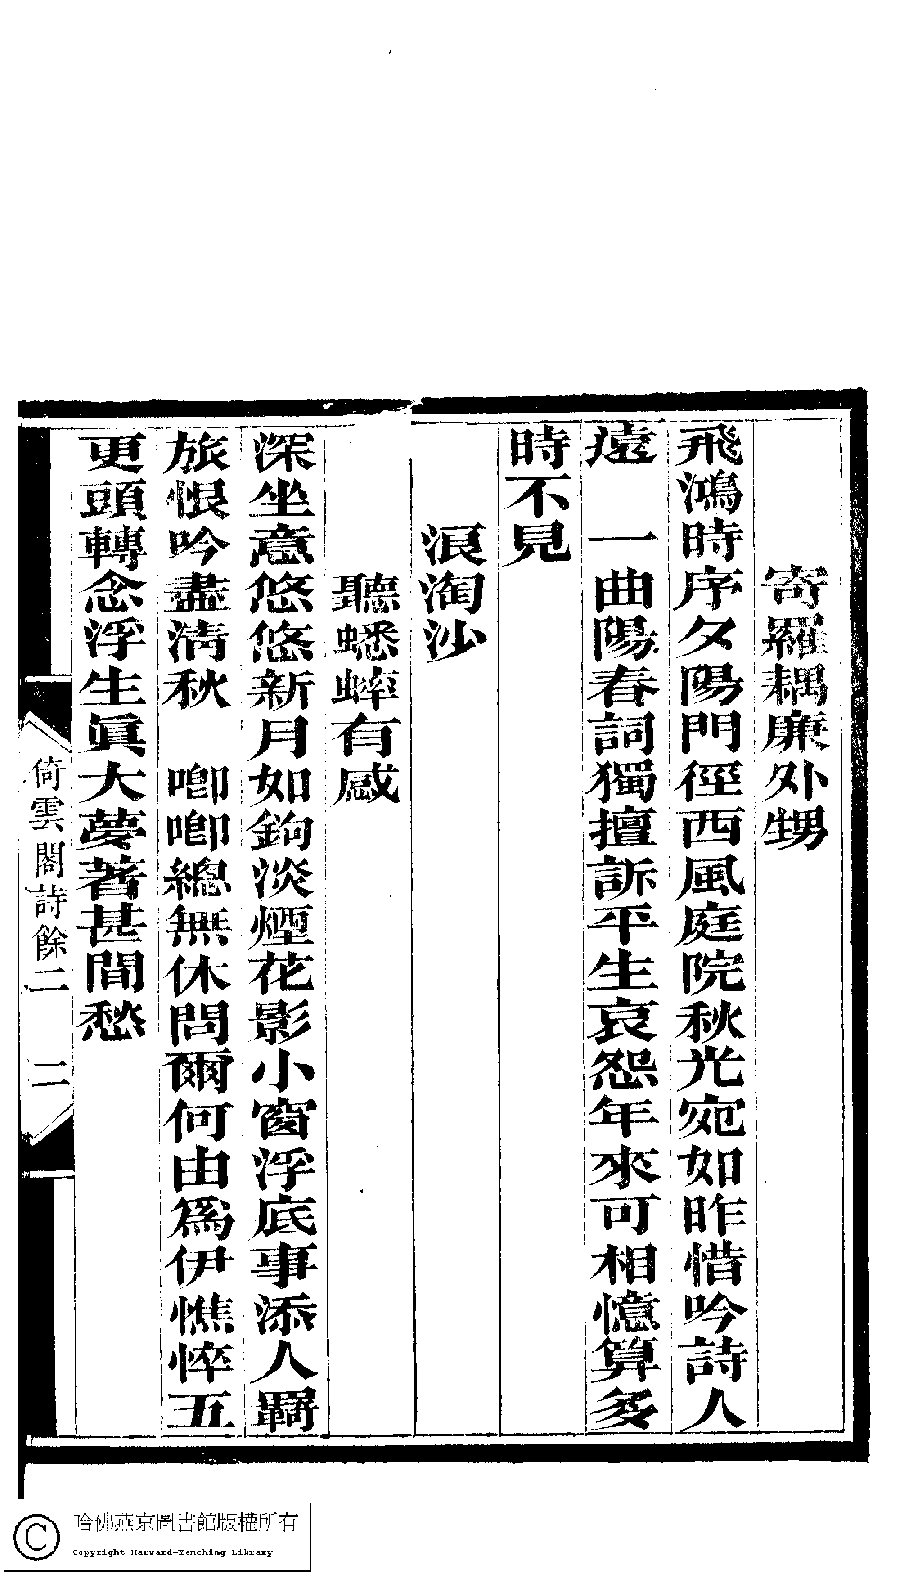 寄羅耦廉外甥
飛鴻時序夕陽門徑西風庭院秋光宛如昨惜吟詩人
遠　一曲陽春詞獨擅訴平生哀怨年來可相憶算多
時不見
浪淘沙
聽蟋蟀有感
深坐意悠悠新月如鉤淡煙花影小窗浮底事添人羇
旅恨吟盡清秋　喞喞總無休問爾何由爲伊憔悴五
更頭轉念浮生眞大夢著甚閒愁
倚雲閣詩餘二　二
哈佛燕京圖書館版權所有
Copyright Harvard-Yenching Library